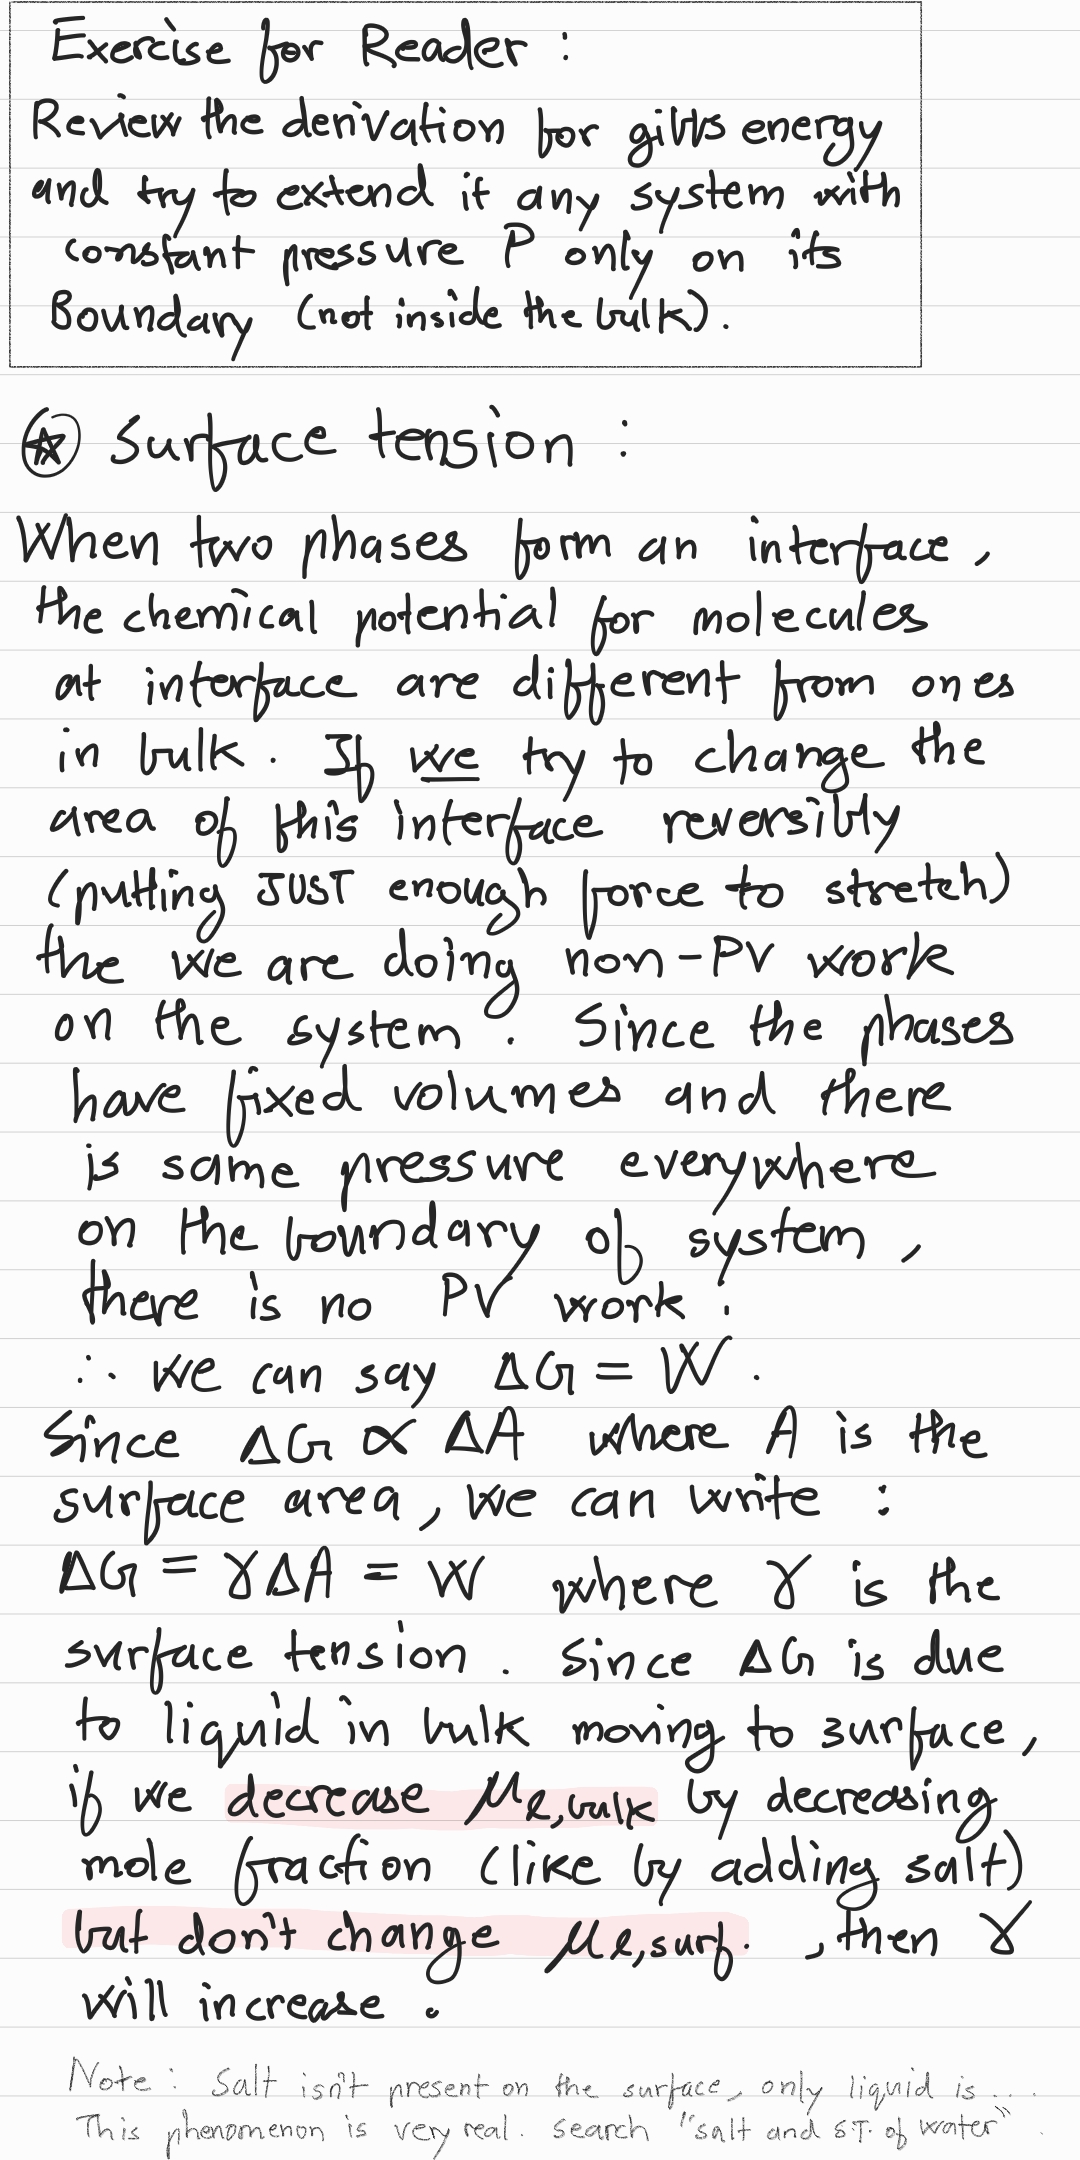 Exercise for Reader :
Review the derivation for gibbs energy
and try to extend it any system with
constant pressure P only on its
Boundary (not inside the bulk).
Surface tension :
When two phases form an interface,
the chemical potential for molecules
at interface are different from ones
in bulk. If we try to change the
area of this interface reversibly
(putting JUST enough force to stretch)
the we are doing non-PV work
on the system. Since the phases
have fixed volumes and there
is same pressure everywhere
on the boundary of system,
there is no PV work.
∴ we can say ΔG = W.
Since ΔG ∝ ΔA where A is the
surface area, we can write :
ΔG = γΔA = W where γ is the
surface tension. Since ΔG is due
to liquid in bulk moving to surface,
if we decrease μℓ,bulk by decreasing
mole fraction (like by adding salt)
but don't change μℓ,surf. , then γ
will increase.
Note : Salt isn't present on the surface, only liquid is ...
This phenomenon is very real. search "salt and S.T. of water".